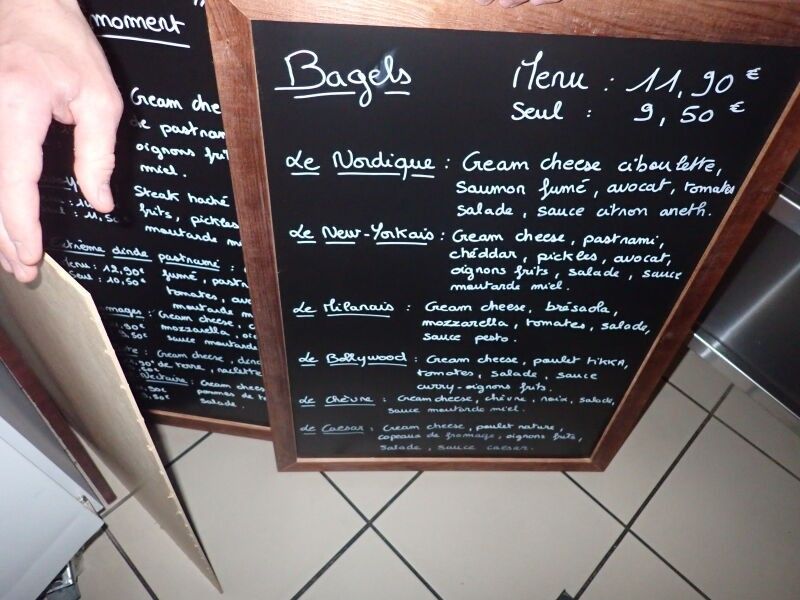 moment
Cream che
de pastram
oignons frit
miel.
Steak haché
frits, pickles
moutarde m
11,50
Extrême dinde pastrami :
Menu : 12,90€
Seul : 10,50€
fumé, pastr
tomates, avo
moutarde m
mages : Cream cheese, c
mozzarella, oi
Cream cheese, dind
de terre, raclette
Nectaire : Cream chees
pommes de t
salade.
Bagels
Menu : 11,90 €
Seul : 9,50 €
Le Nordique : Cream cheese ciboulette,
saumon fumé, avocat, tomates
salade, sauce citron aneth.
Le New-Yorkais : Cream cheese, pastrami,
chéddar, pickles, avocat,
oignons frits, salade, sauce
moutarde miel.
Le Milanais : Cream cheese, brésaola,
mozzarella, tomates, salade,
sauce pesto.
Le Bollywood : Cream cheese, poulet tikka,
tomates, salade, sauce
curry-oignons frits.
Le Chèvre : Cream cheese, chèvre, noix, salade,
sauce moutarde miel.
Le Caesar : Cream cheese, poulet nature,
copeaux de fromage, oignons frits,
salade, sauce caesar.